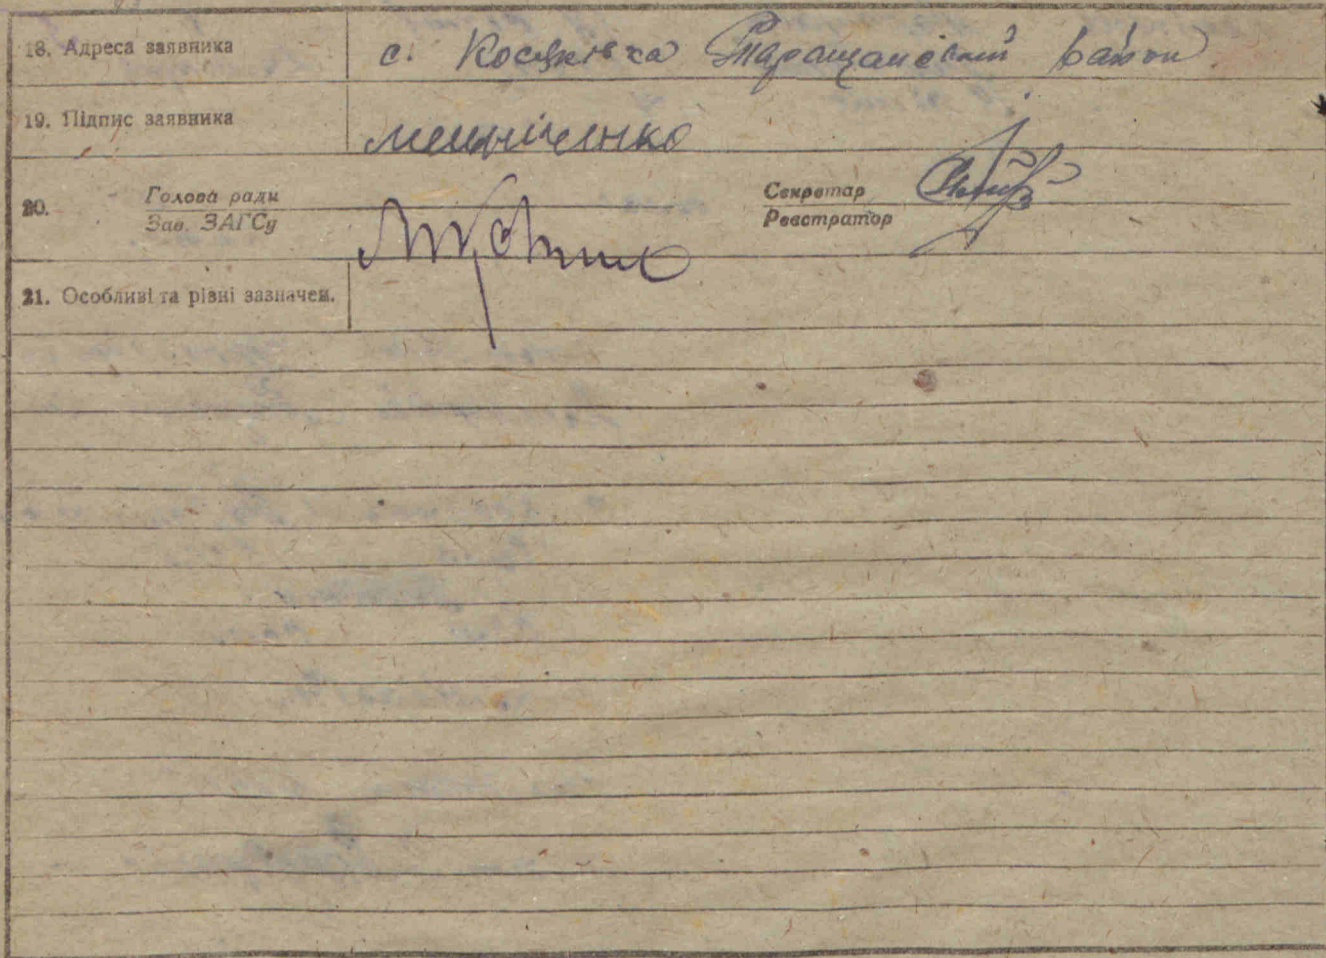 18. Адреса заявника с. Косяківка Таращанський район
19. Підпис заявника Мельніченко
20. Голова ради Секретар
Зав. ЗАГСу Реєстратор
21. Особливі та різні зазначен.